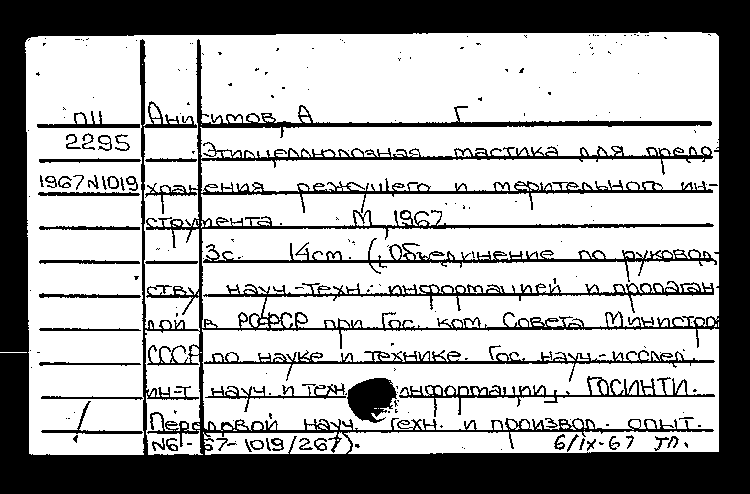 П11 Анисимов, А Г
2295 Этилцеллюлозная мастика для предо-
1967 N1019 хранения режущего и мерительного ин-
струмента. М, 1967
3с. 14см. (Объединение по руковод-
ству науч.-техн. информацией и пропаган-
дой в РСФСР при Гос. ком. Совета Министров
СССР по науке и технике. Гос. науч.-исслед.
ин-т науч. и техн. информации. ГОСИНТИ.
Передовой науч. техн. и производ. опыт.
N6-67-1019/267). 6/IX-67